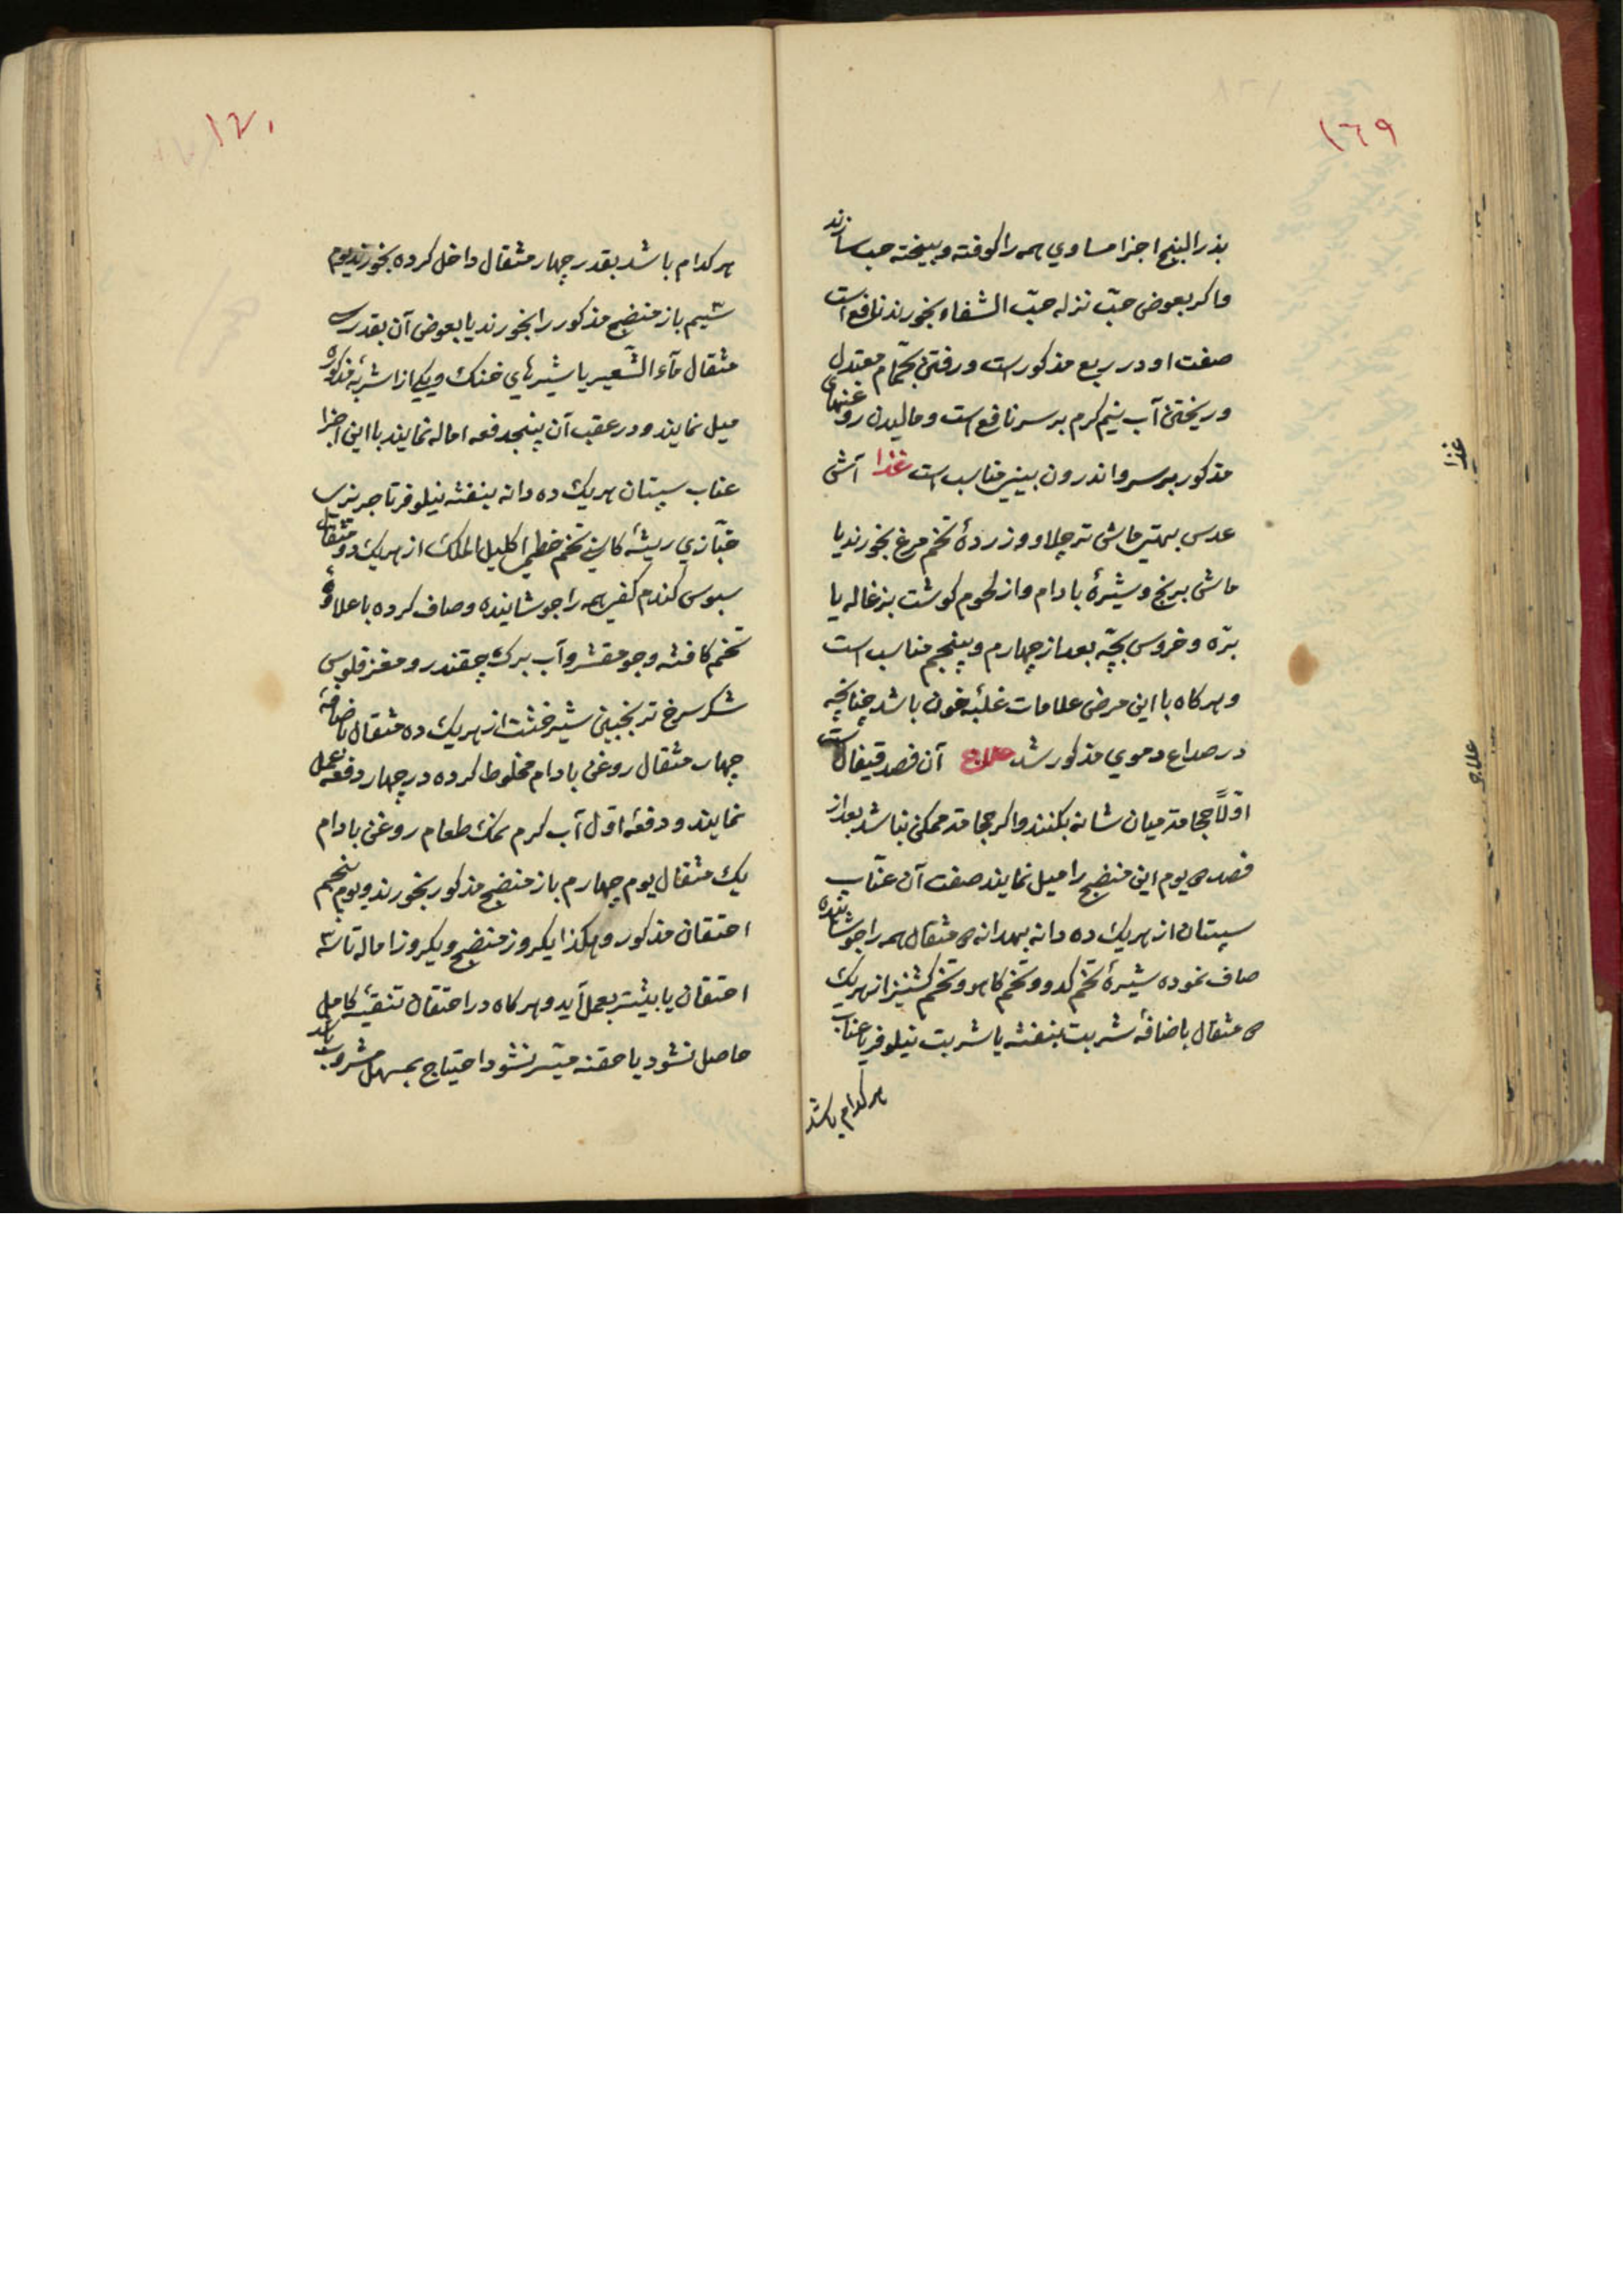 ١٦٩
بذر البنج اجزا مساوي همه را كوفته و بيخته حب سازند
و اكر بعوض حبّ نزله حبّ الشفاء بخورند نافع است
صفت او در ربع مذكور است و رفتن بحمّام معتدل
و ريختن آب نيم كرم بر سر نافع است و ماليدن روغنهاى
مذكور بر سر و اندرون بيني مناسب است غذا آش
عدس بهتر ماش تر چلاو و زردهٔ تخم مرغ بخورند يا
ماش برنج و شيرهٔ بادام و از لحوم كوشت بزغاله يا
برّه و خروس بچّه بعد از چهارم و پنجم مناسب است
و هر كاه با اين مرض علامات غلبهٔ خون باشد چنانچه
در صداع دموي مذكور شد علاج آن فصد قيفال است
اوّلاً حجامة ميان شانه بكنند و اكر حجامة ممكن نباشد بعد از
فصد ٣ يوم اين منضج را ميل نمايند صفت آن عنّاب
سپستان از هر يك ده دانه بهدانه ٣ مثقال همه را جوشانيده
صاف نموده شيرهٔ تخم كدو و تخم كاهو و تخم كشنيز از هر يك
٣ مثقال باضافهٔ شربت بنفشه يا شربت نيلوفر يا عناب
هر كدام باشد
غذا
علاج
١٧٠
هر كدام باشد بقدر چهار مثقال داخل كرده بخورند يوم
سيم باز منضج مذكور را بخورند يا بعوض آن بقدر سى
مثقال مآء الشّعير يا شيرهاي خنك و يكي از اشربهٔ مذكوره
ميل نمايند و در عقب آن پنجدفعه اماله نمايند با اين اجزا
عناب سپستان هر يك ده دانه بنفشه نيلوفر تاجريزى
خبّازي ريشهٔ كاسني تخم خطمي اكليل الملك از هر يك دو مثقال
سبوس كندم كفي همه را جوشانيده و صاف كرده با علاوهٔ
تخم كافشه و جو مقشر و آب برك چقندر و مغز فلوس
شكر سرخ ترنجبين شيرخشت از هر يك ده مثقال باضافهٔ
چهار مثقال روغن بادام مخلوط كرده در چهار دفعه عمل
نمايند و دفعهٔ اوّل آب كرم نمك طعام روغن بادام
يك مثقال يوم چهارم باز منضج مذكور بخورند و يوم پنجم
احتقان مذكور و هكذا يكروز منضج و يكروز اماله تا سه
احتقان يا بيشتر بعمل آيد و هر كاه در احتقان تنقيهٔ كامل
حاصل نشود يا حقنه ميّسر نشود احتياج بمسهل مشروب باشد